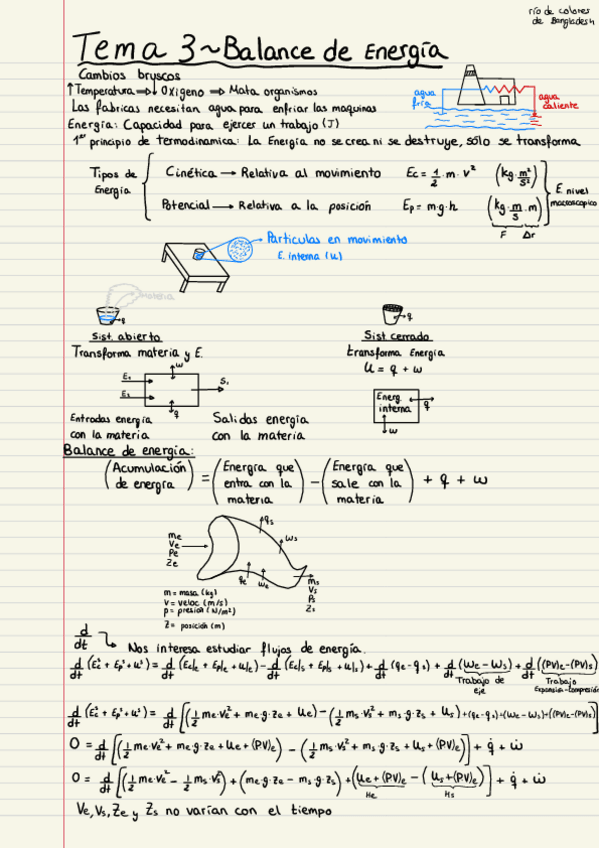 río de colores
de Bangladesh
Tema 3 ~ Balance de Energía
Cambios bruscos
↑Temperatura ⇒ ↓Oxígeno ⇒ Mata organismos
Las fabricas necesitan agua para enfriar las maquinas
agua fría
agua caliente
Energía: Capacidad para ejercer un trabajo (J)
1er principio de termodinamica: La Energía no se crea ni se destruye, sólo se transforma
Tipos de Energía
Cinética → Relativa al movimiento Ec = 1/2 · m · v² (kg · m²/s²)
Potencial → Relativa a la posición Ep = m·g·h (kg · m/s · m)
F Δr
E. nivel macroscopico
Partículas en movimiento
E. interna (u)
materia
q
q
Sist. abierto
Sist cerrado
Transforma materia y E.
transforma Energía
U = q + w
E₁
E₂
w
S₁
q
Energ. interna
q
w
Entradas energía con la materia
Salidas energía con la materia
Balance de energía:
(Acumulación de energía) = (Energía que entra con la materia) − (Energía que sale con la materia) + q + w
me
Ve
Pe
Ze
qs
ws
qe
we
ms
Vs
Ps
Zs
m = masa (kg)
V = veloc (m/s)
P = presión (N/m²)
Z = posición (m)
d/dt ↳ Nos interesa estudiar flujos de energía.
d/dt (Ec + Ep + u) = d/dt (Ec|e + Ep|e + u|e) − d/dt (Ec|s + Ep|s + u|s) + d/dt (qe − qs) + d/dt (We − Ws) + d/dt ((PV)e − (PV)s)
Trabajo de eje
Trabajo Expansión-compresión
d/dt (Ec + Ep + u) = d/dt [(1/2 me·Ve² + me·g·Ze + Ue) − (1/2 ms·Vs² + ms·g·Zs + Us) + (qe − qs) + (We − Ws) + ((PV)e − (PV)s)]
0 = d/dt [(1/2 me·Ve² + me·g·Ze + Ue + (PV)e) − (1/2 ms·Vs² + ms·g·Zs + Us + (PV)e)] + q̇ + ẇ
0 = d/dt [(1/2 me·Ve² − 1/2 ms·Vs²) + (me·g·Ze − ms·g·Zs) + (Ue + (PV)e − (Us + (PV)e)] + q̇ + ẇ
He Hs
Ve, Vs, Ze y Zs no varían con el tiempo